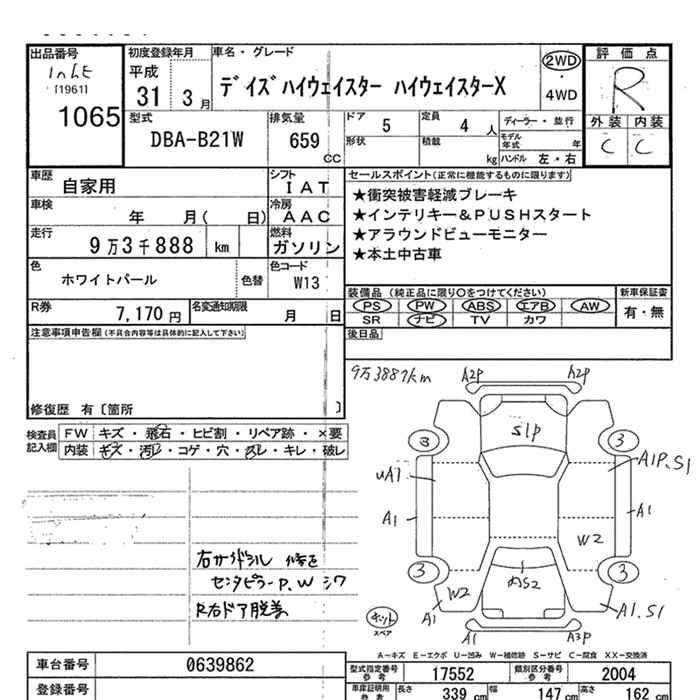 出品番号 初度登録年月 車名・グレード 評価点
[1961] 平成 デイズハイウェイスター ハイウェイスターX 2WD R
1065 31 3月 4WD
外装 内装
型式 排気量 ドア 5 定員 4人 ディーラー・並行 C C
DBA-B21W 659cc 形状 積載 kg モデル年式 年
ハンドル 左・右
車歴 自家用 シフト IAT セールスポイント(正常に機能するものに限ります)
車検 年 月( 日) 冷房 AAC ★衝突被害軽減ブレーキ
走行 9万3千888km 燃料 ガソリン ★インテリキー&PUSHスタート
★アラウンドビューモニター
★本土中古車
色 ホワイトパール 色替 色コード W13
装備品(純正品に限り○をつけてください) 新車保証書
R券 7,170円 名変通知期限 月 日 PS PW ABS エアB AW 有・無
SR ナビ TV カワ
注意事項申告欄(不具合内容等は具体的に記入して下さい) 後日品
修復歴 有〔箇所 〕
9万3889km A2P A2P
検査員記入欄 FW キズ・飛石・ヒビ割・リペア跡・×要
内装 キズ・汚レ・コゲ・穴・スレ・キレ・破レ
S1P
3 3
A1P.S1
UA1
A1 A1
W2
3 3
W2
A1 A1.S1
スペア
A1 A3P
右サイドシル 修正
センタピラーP.W シワ
R右ドア脱着
A-キズ E-エクボ U-凹み W-補修跡 S-サビ C-腐食 XX-交換済
車台番号 0639862 型式指定番号参考 17552 類別区分番号参考 2004
登録番号 車庫証明用参考 長さ 339cm 幅 147cm 高さ 162cm